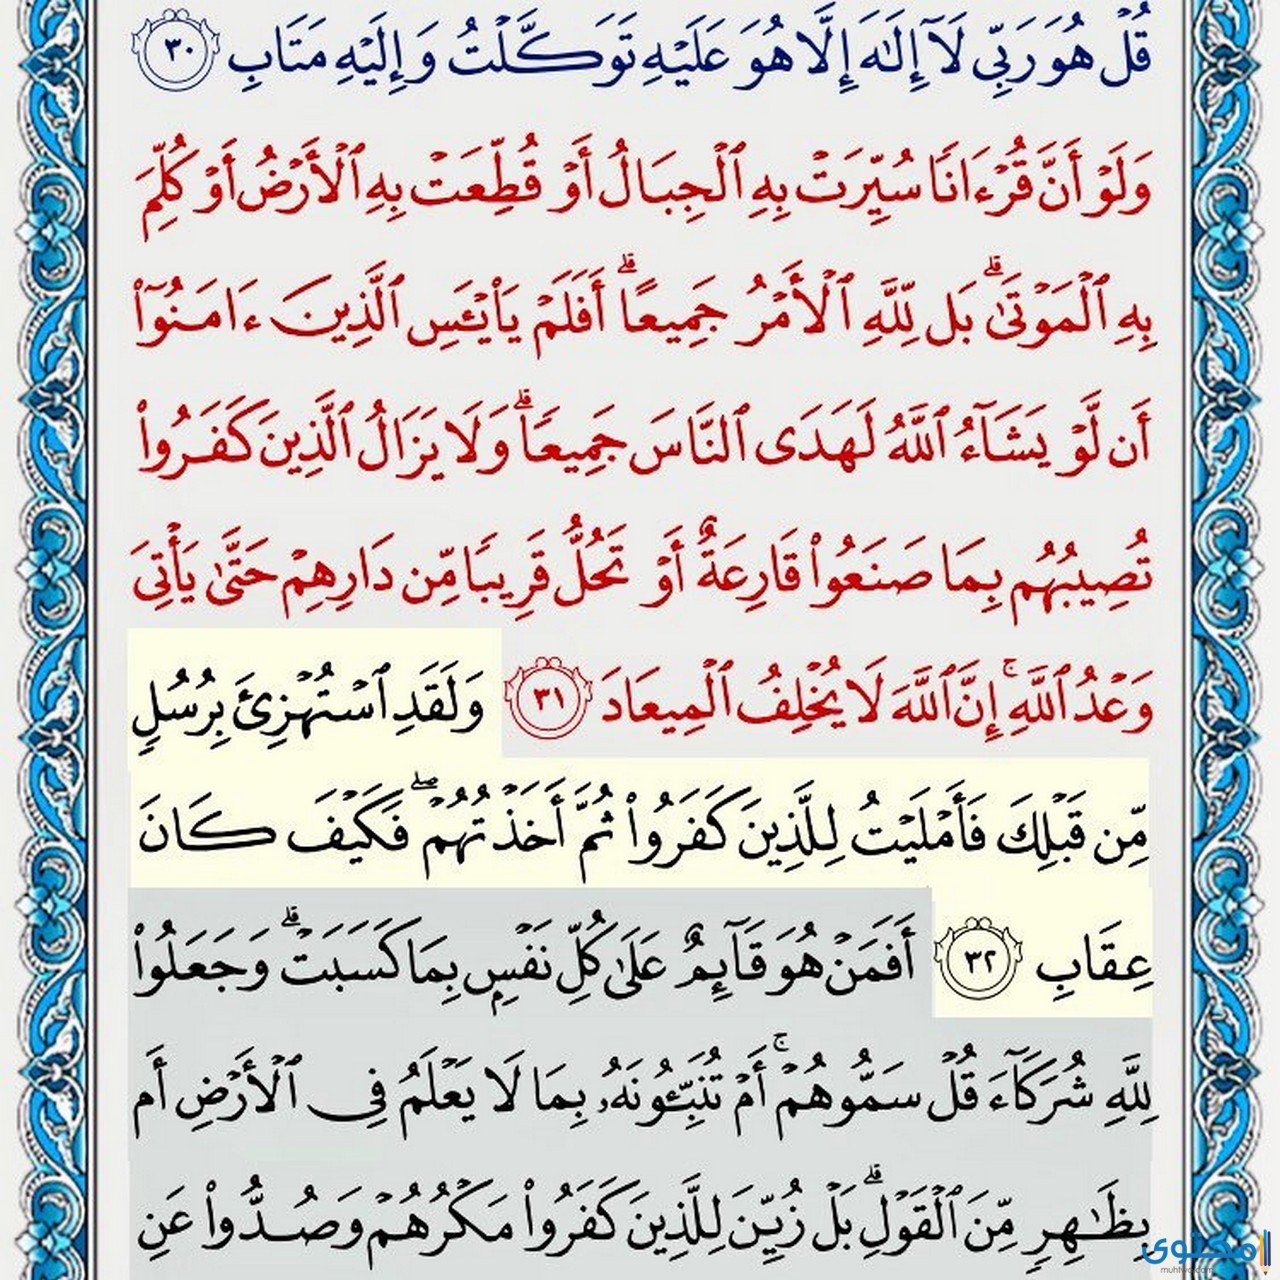 قُلْ هُوَ رَبِّى لَآ إِلَٰهَ إِلَّا هُوَ عَلَيْهِ تَوَكَّلْتُ وَإِلَيْهِ مَتَابِ ٣٠
وَلَوْ أَنَّ قُرْءَانًا سُيِّرَتْ بِهِ ٱلْجِبَالُ أَوْ قُطِّعَتْ بِهِ ٱلْأَرْضُ أَوْ كُلِّمَ
بِهِ ٱلْمَوْتَىٰۗ بَل لِّلَّهِ ٱلْأَمْرُ جَمِيعًاۗ أَفَلَمْ يَا۟يْـَٔسِ ٱلَّذِينَ ءَامَنُوٓا۟
أَن لَّوْ يَشَآءُ ٱللَّهُ لَهَدَى ٱلنَّاسَ جَمِيعًاۗ وَلَا يَزَالُ ٱلَّذِينَ كَفَرُوا۟
تُصِيبُهُم بِمَا صَنَعُوا۟ قَارِعَةٌ أَوْ تَحُلُّ قَرِيبًا مِّن دَارِهِمْ حَتَّىٰ يَأْتِىَ
وَعْدُ ٱللَّهِۚ إِنَّ ٱللَّهَ لَا يُخْلِفُ ٱلْمِيعَادَ ٣١ وَلَقَدِ ٱسْتُهْزِئَ بِرُسُلٍ
مِّن قَبْلِكَ فَأَمْلَيْتُ لِلَّذِينَ كَفَرُوا۟ ثُمَّ أَخَذْتُهُمْۖ فَكَيْفَ كَانَ
عِقَابِ ٣٢ أَفَمَنْ هُوَ قَآئِمٌ عَلَىٰ كُلِّ نَفْسٍۭ بِمَا كَسَبَتْۗ وَجَعَلُوا۟
لِلَّهِ شُرَكَآءَ قُلْ سَمُّوهُمْۚ أَمْ تُنَبِّـُٔونَهُۥ بِمَا لَا يَعْلَمُ فِى ٱلْأَرْضِ أَم
بِظَٰهِرٍ مِّنَ ٱلْقَوْلِۗ بَلْ زُيِّنَ لِلَّذِينَ كَفَرُوا۟ مَكْرُهُمْ وَصُدُّوا۟ عَنِ
محتوى